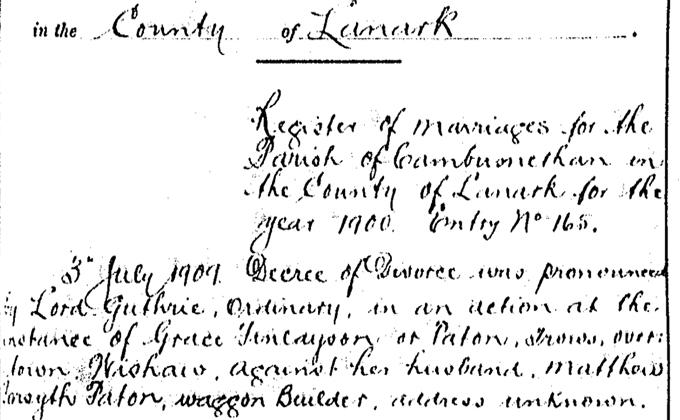 in the County of Lanark.
Register of Marriages for the
Parish of Cambusnethan in
the County of Lanark for the
year 1900. Entry No 165.
3d July 1909. Decree of Divorce was pronounced
by Lord Guthrie, Ordinary, in an action at the
instance of Grace Finlayson or Paton, over:
town Wishaw, against her husband, Matthew
Forsyth Paton, waggon Builder, address unknown.